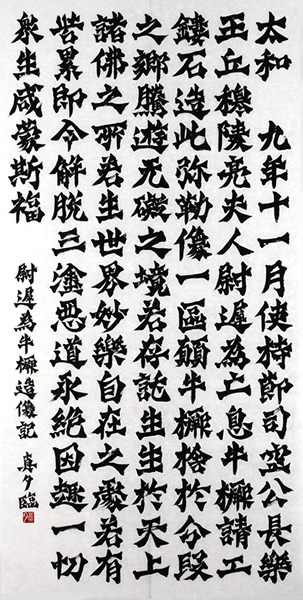 太和 九年十一月使持節司空公長樂
王丘穆陵亮夫人尉遲為亡息牛橛請工
鏤石造此弥勒像一區願牛橛捨於分段
之鄉騰遊无礙之境若存託生生於天上
諸佛之所若生世界妙樂自在之處若有
苦累即令解脫三塗惡道永絕因趣一切
眾生咸蒙斯福
尉遲為牛橛造像記 真夕臨